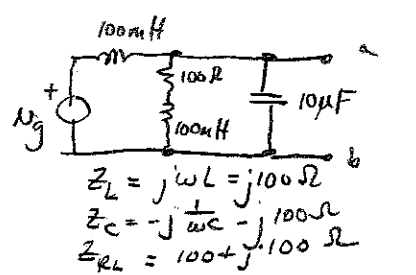 100mH
a
100Ω
+
10μF
100mH
Ng
b
Z_L = jωL = j100Ω
Z_C = -j 1/ωC - j100Ω
Z_RL = 100 + j100 Ω